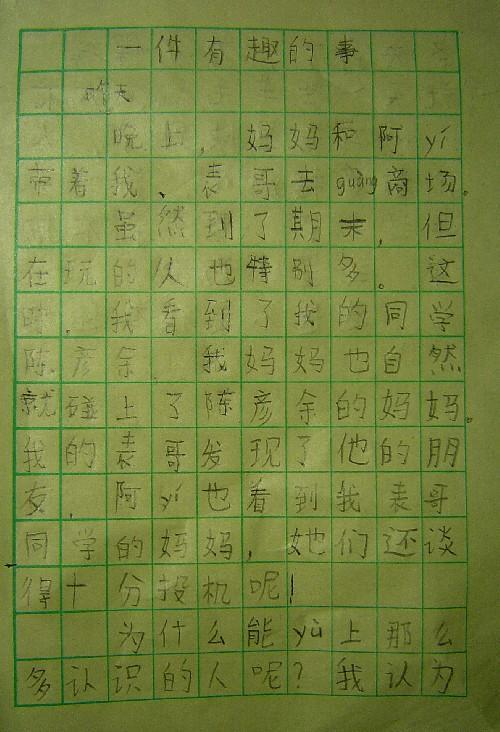 一件有趣的事
昨天
晚上，妈妈和阿yí
带着我、表哥去guàng商场。
虽然到了期末，但
在玩的人也特别多。这
时，我看到了我的同学
陈彦余。我妈妈也自然
就碰上了陈彦余的妈妈。
我的表哥发现了他的朋
友，阿yí也看到我表哥
同学的妈妈，她们还谈
得十分投机呢！
为什么能yù上那么
多认识的人呢？我认为